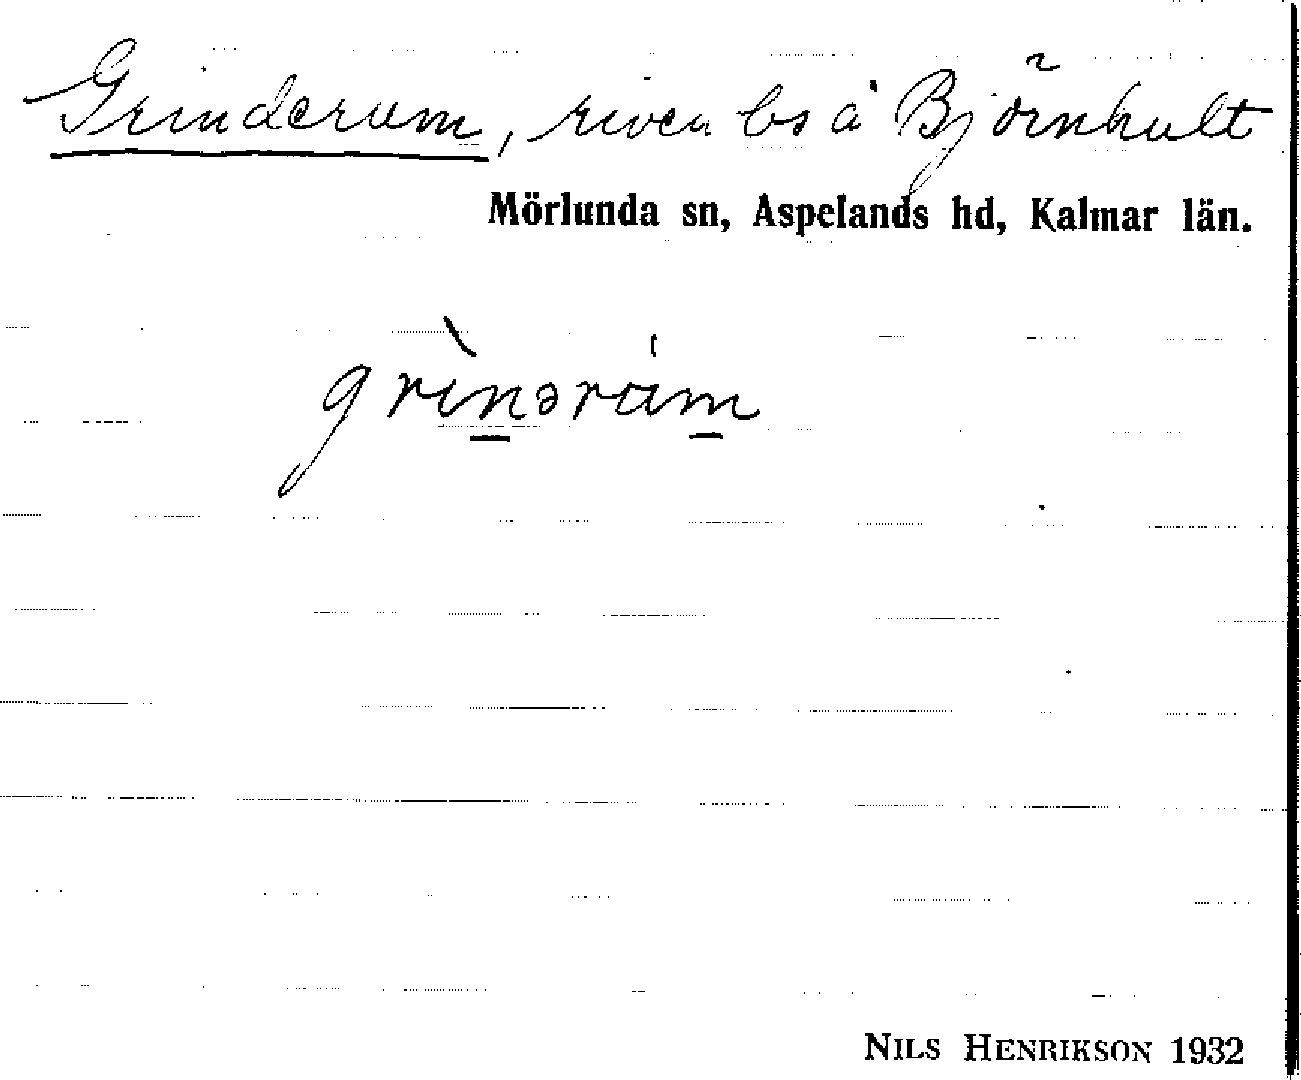 Grinderum, riven bs å Björnhult
Mörlunda sn, Aspelands hd, Kalmar län.
grìnərám
NILS HENRIKSON 1932